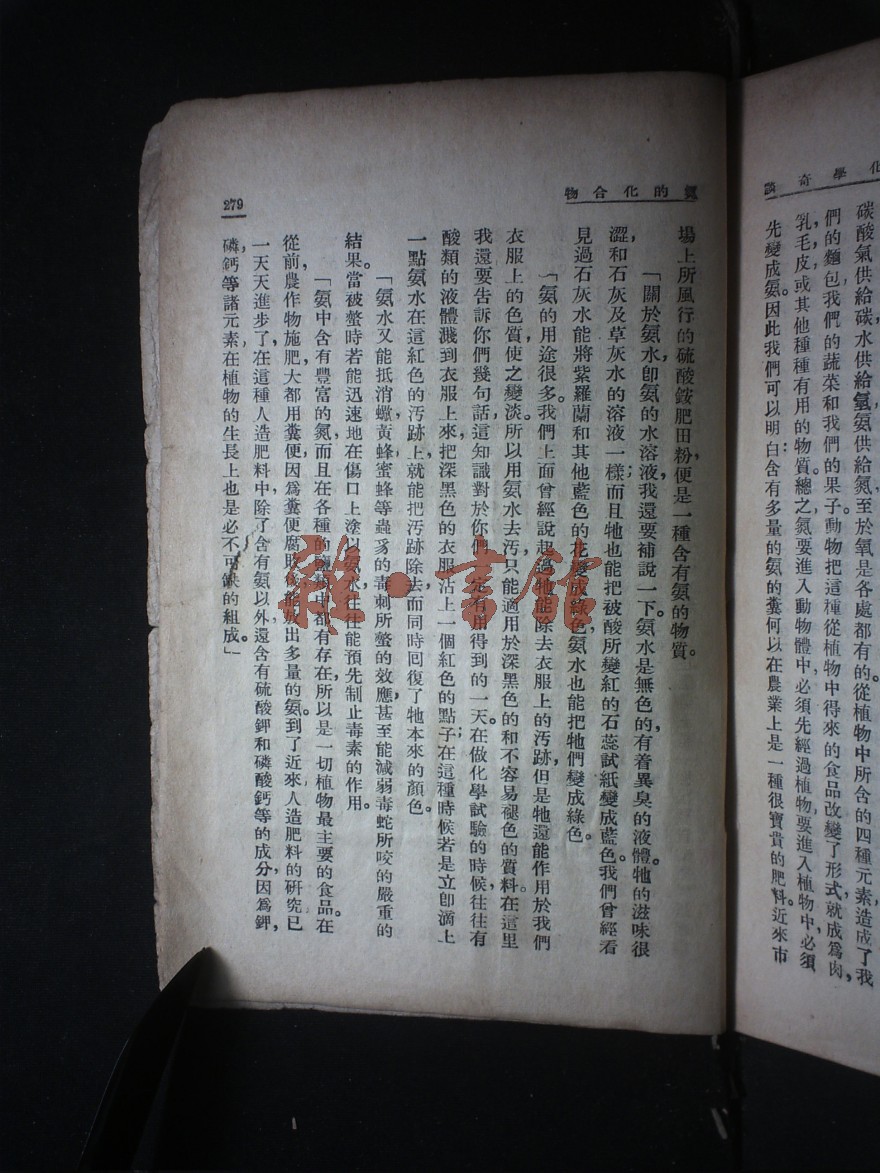 化學奇談
碳酸氣供給碳,水供給氫,氨供給氮,至於氧是各處都有的。從植物中所含的四種元素造成了我
們的麵包,我們的蔬菜和我們的果子。動物把這種從植物中得來的食品改變了形式,就成爲肉,
乳,毛皮,或其他種種有用的物質。總之,氮要進入動物體中,必須先經過植物,要進入植物中,必須
先變成氨。因此我們可以明白:含有多量的氨的糞何以在農業上是一種很寶貴的肥料。近來市
氮的化合物
場上所風行的硫酸銨肥田粉,便是一種含有氨的物質。
「關於氨水卽氨的水溶液,我還要補說一下。氨水是無色的,有着異臭的液體。牠的滋味很
澀,和石灰及草灰水的溶液一樣;而且牠也能把被酸所變紅的石蕊試紙變成藍色。我們曾經看
見過石灰水能將紫羅蘭和其他藍色的花變成綠色,氨水也能把牠們變成綠色。
「氨的用途很多。我們上面曾經說起過牠能除去衣服上的污跡,但是牠還能作用於我們
衣服上的色質,使之變淡。所以用氨水去污,只能適用於深黑色的和不容易褪色的質料。在這里
我還要告訴你們幾句話,這知識對於你們一定有用得到的一天。在做化學試驗的時候,往往有
酸類的液體濺到衣服上來,把深黑色的衣服沾上一個紅色的點子;在這種時候若是立卽滴上
一點氨水在這紅色的污跡上,就能把污跡除去,而同時回復了牠本來的顏色。
「氨水又能抵消蠍,黃蜂,蜜蜂等蟲豸的毒刺所螫的效應,甚至能減弱毒蛇所咬的嚴重的
結果。當被螫時若能迅速地在傷口上塗以氨水,往往能預先制止毒素的作用。
「氨中含有豐富的氮,而且在各種的鹽類中都有存在,所以是一切植物最主要的食品。在
從前,農作物施肥大都用糞便,因爲糞便腐敗後能放出多量的氨。到了近來,人造肥料的硏究已
一天天進步了,在這種人造肥料中,除了含有氨以外,還含有硫酸鉀和磷酸鈣等的成分,因爲鉀,
磷,鈣等諸元素,在植物的生長上也是必不可缺的組成。」
279
雅·書館